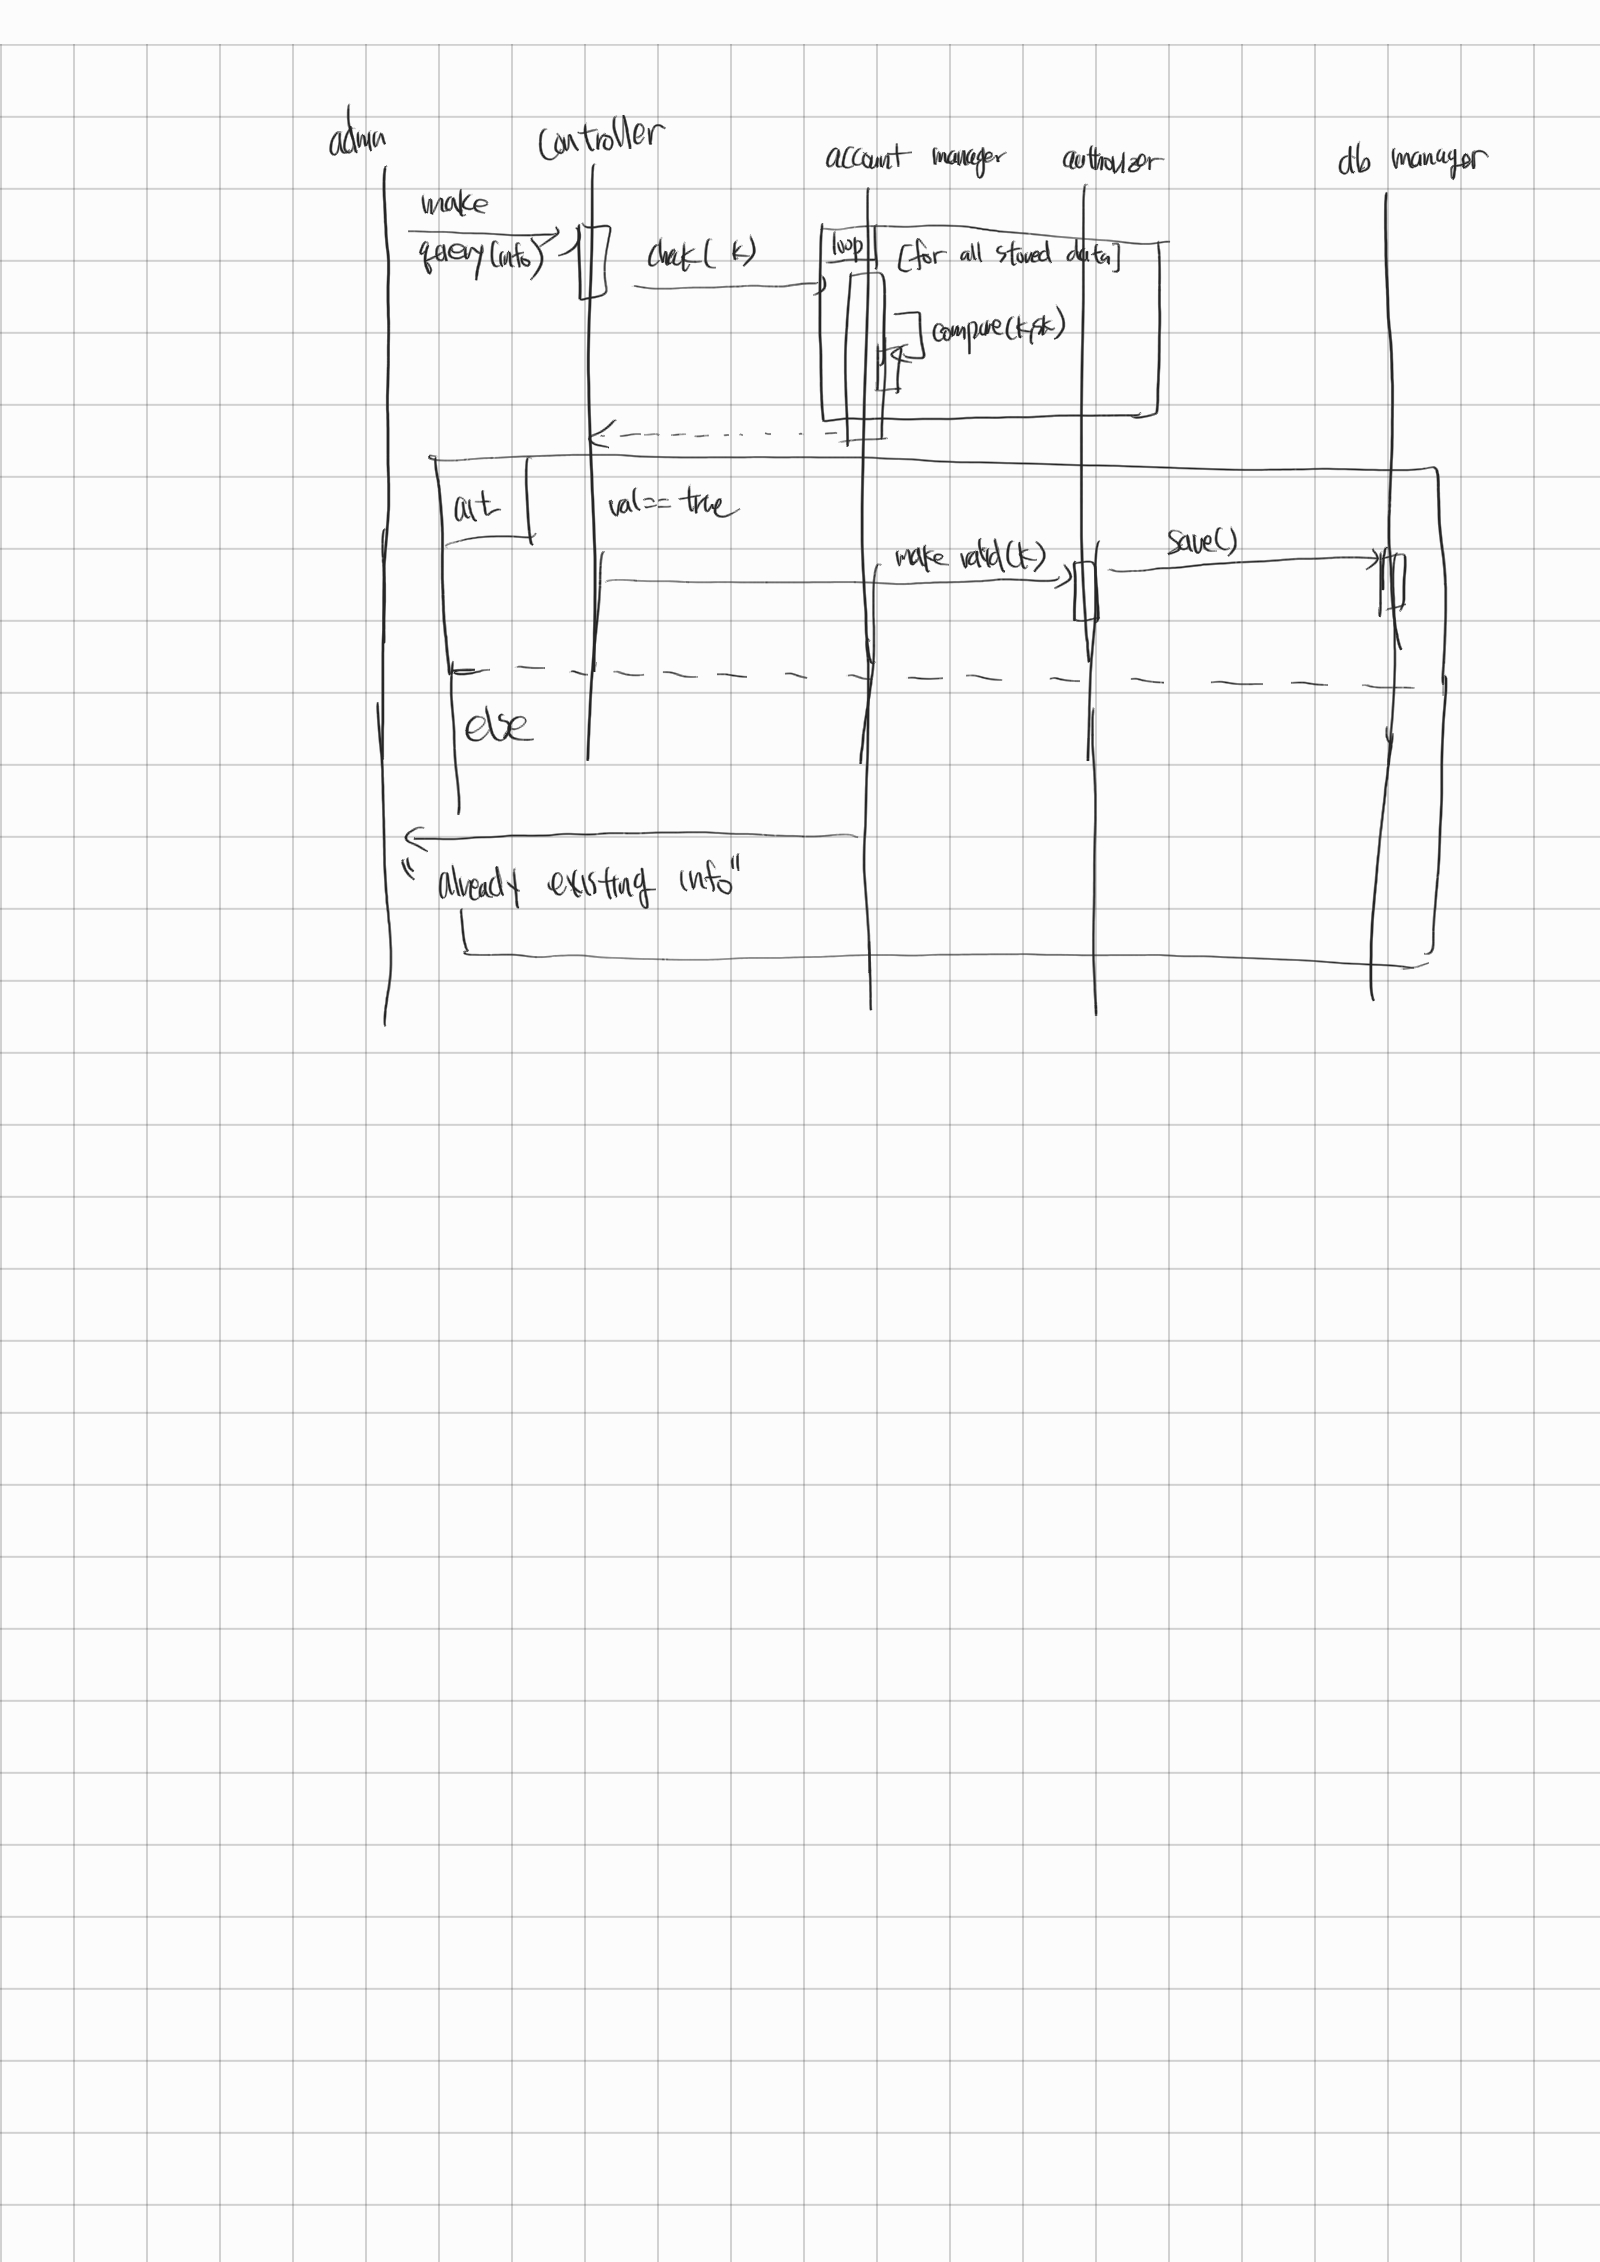 admin
controller
account manager
authorizer
db manager
make
query(info)
check( k)
loop
[for all stored data]
compare(k,sk)
alt
val == true
make valid(k)
save()
else
"already existing info"